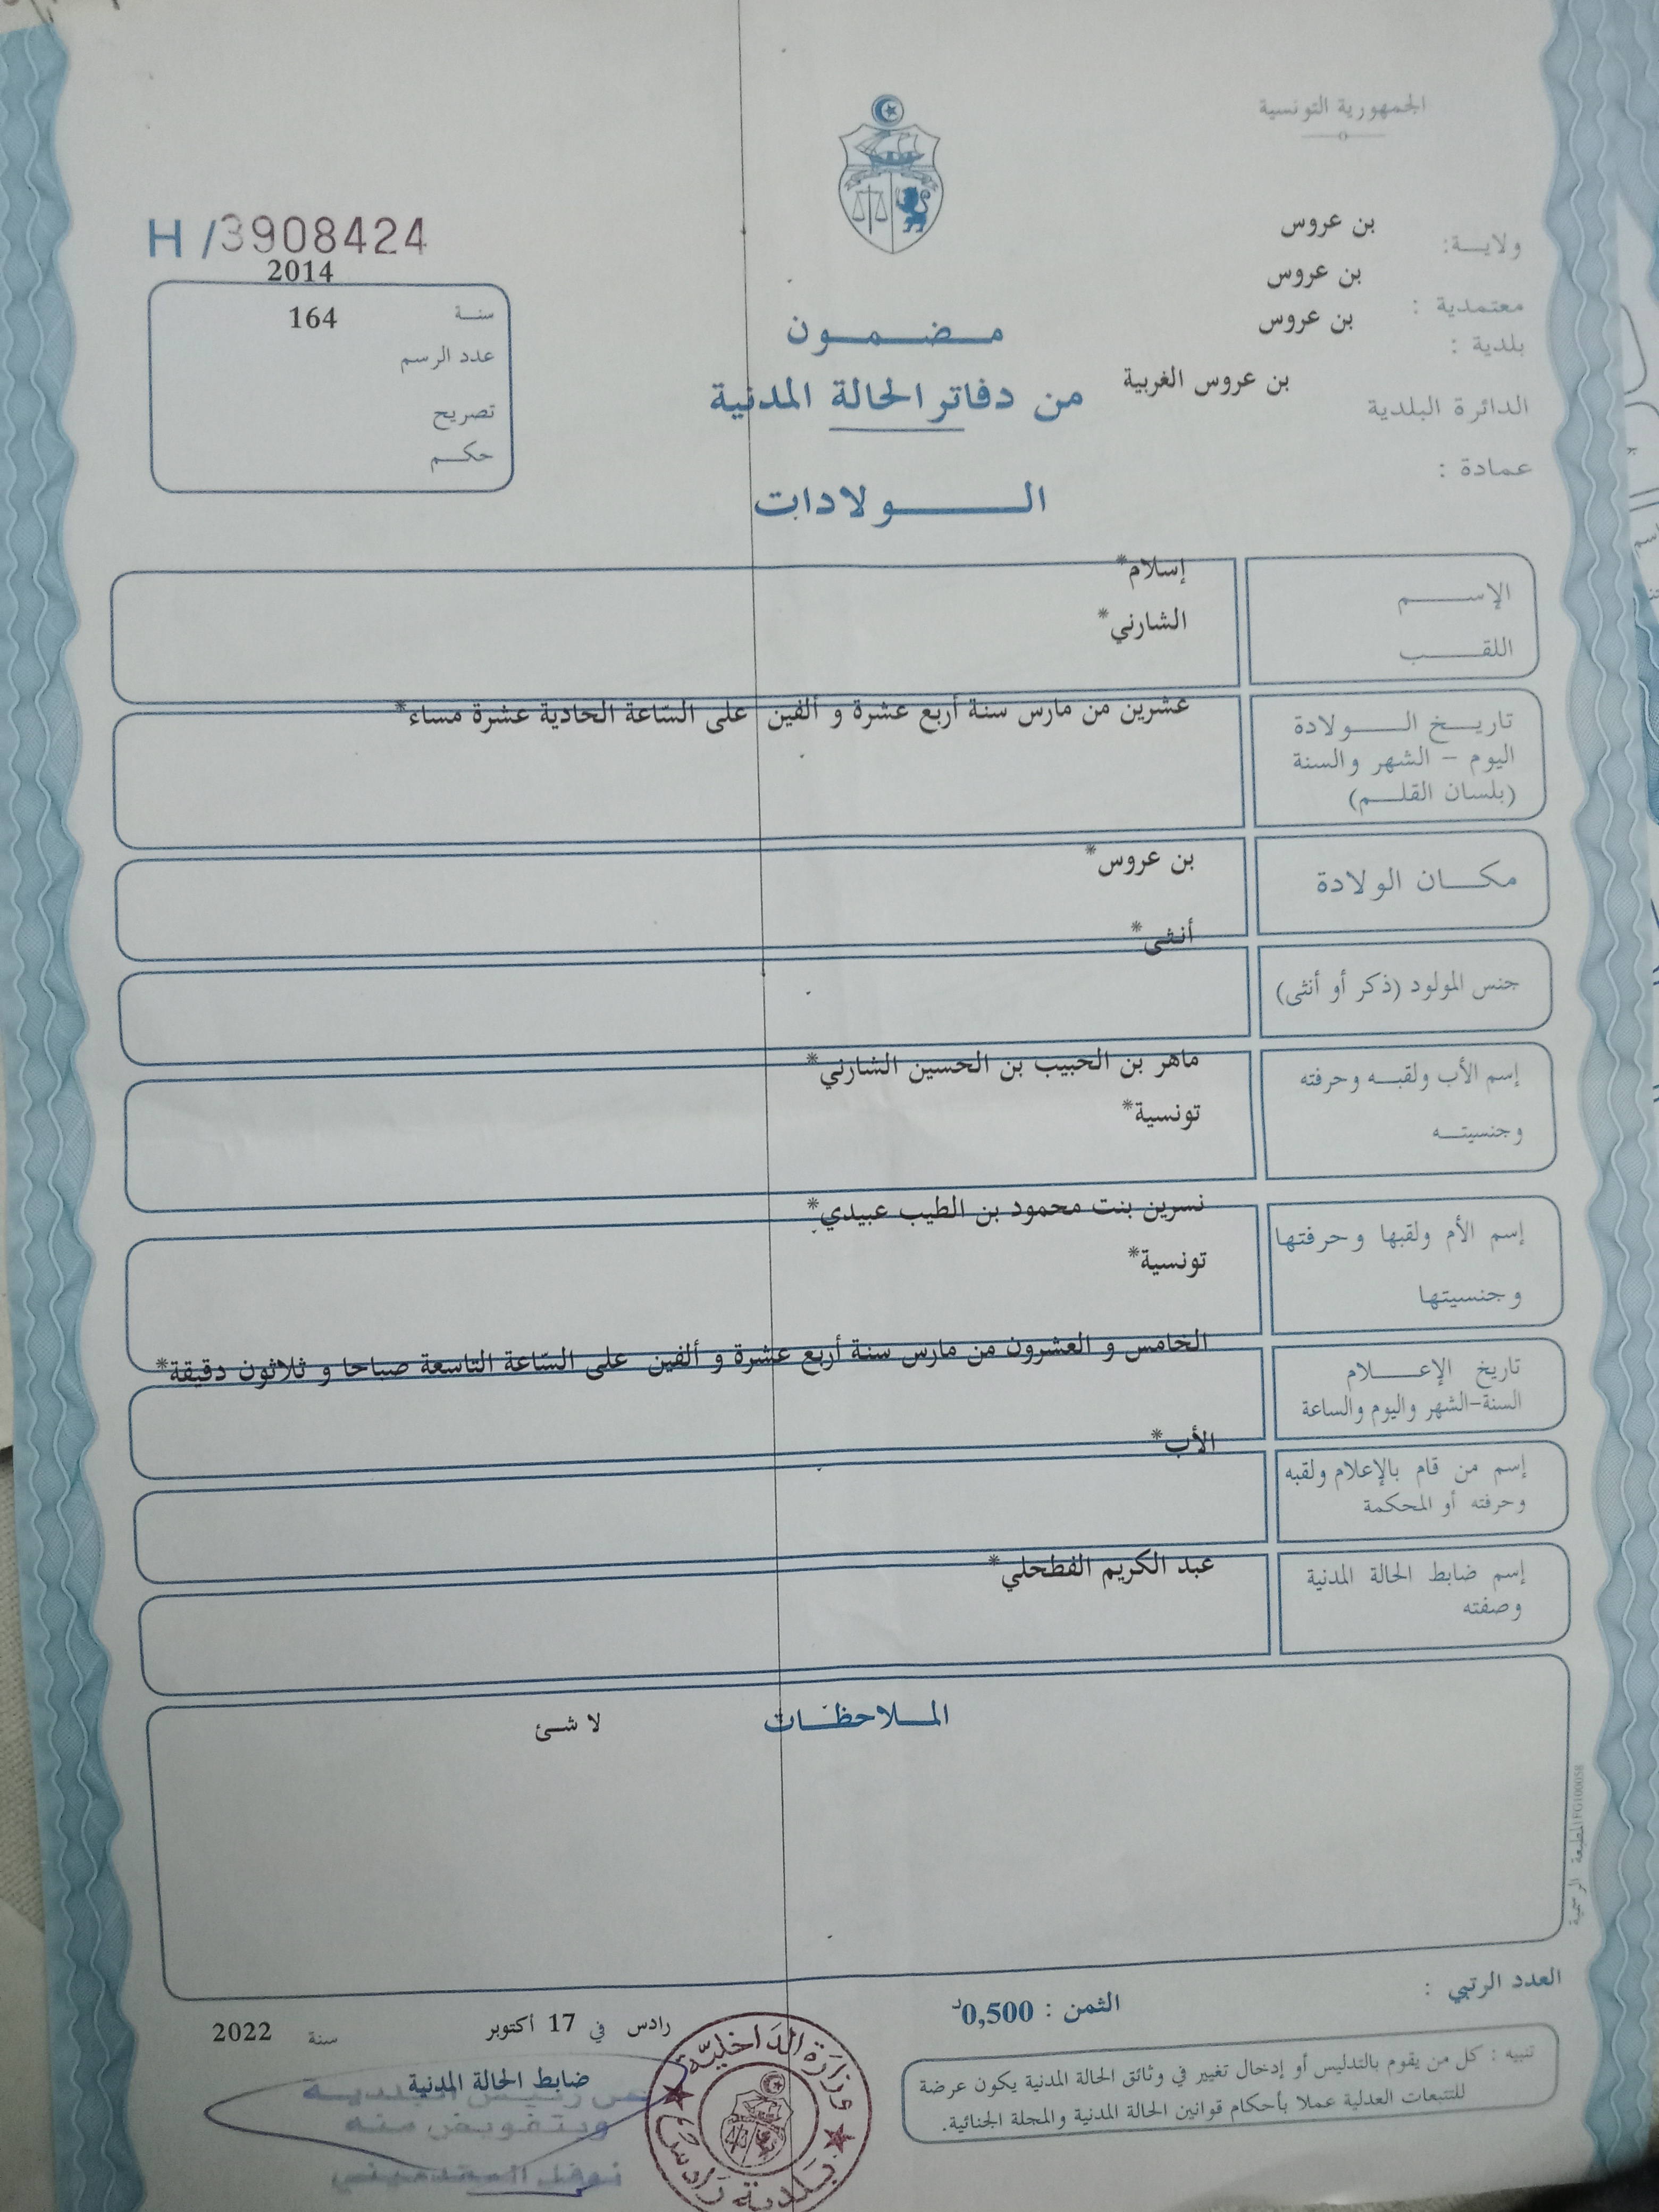 الجمهورية التونسية
ولايـــة: بن عروس
معتمدية : بن عروس
بلدية : بن عروس
الدائرة البلدية بن عروس الغربية
عمادة :
مـــضـــمـــون
من دفاتر الحالة المدنية
الـــــولادات
H /3908424
2014
سنـة 164
عدد الرسم
تصريح
حكـــم
الإســـــم إسلام*
اللقـــــب الشارني*
تاريـــخ الــــولادة عشرين من مارس سنة أربع عشرة و ألفين على السّاعة الحادية عشرة مساء*
اليوم – الشهر والسنة
(بلسان القلـــم)
مكـــان الولادة بن عروس*
أنثى*
جنس المولود (ذكر أو أنثى)
إسم الأب ولقبـــه وحرفته ماهر بن الحبيب بن الحسين الشارني*
وجنسيتـــه تونسية*
إسم الأم ولقبها وحرفتها نسرين بنت محمود بن الطيب عبيدي*
وجنسيتها تونسية*
تاريخ الإعــــلام الخامس و العشرون من مارس سنة أربع عشرة و ألفين على السّاعة التاسعة صباحا و ثلاثون دقيقة*
السنة-الشهر واليوم والساعة
إسم من قام بالإعلام ولقبه الأب*
وحرفته أو المحكمة
إسم ضابط الحالة المدنية عبد الكريم الفطحلي*
وصفته
المـــلاحظـــات لا شئ
المطبعة الرسمية FG100058
العدد الرتبي :
الثمن : 0,500د
رادس في 17 أكتوبر سنة 2022
ضابط الحالة المدنية
وبتفويض منه
تنبيه : كل من يقوم بالتدليس أو إدخال تغيير في وثائق الحالة المدنية يكون عرضة
للتتبعات العدلية عملا بأحكام قوانين الحالة المدنية والمجلة الجنائية.
وزارة الداخلية
بلدية رادس